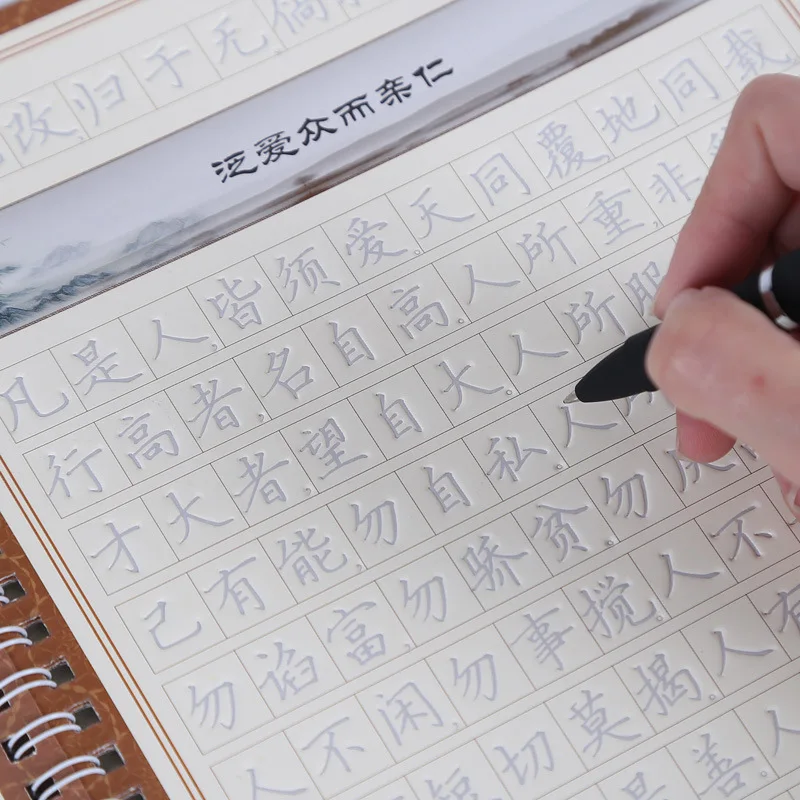 改,归于无,倘
泛爱众而亲仁
凡是人,皆须爱。天同覆,地同载
行高者,名自高。人所重,非
才大者,望自大。人所服
己有能,勿自私。人
勿谄富,勿骄贫。勿厌
人不闲,勿事搅。人不
短,切莫揭。人有
是善。人